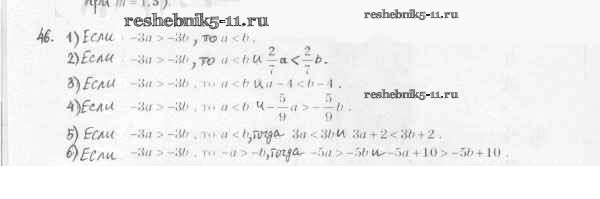 при m = 1,5).
reshebnik5-11.ru
46. 1) Если -3a > -3b, то a < b.
2) Если -3a > -3b, то a < b и 2/7 a < 2/7 b.
3) Если -3a > -3b, то a < b и a - 4 < b - 4.
reshebnik5-11.ru
4) Если -3a > -3b, то a < b и -5/9 a > -5/9 b.
5) Если -3a > -3b, то a < b, тогда 3a < 3b и 3a + 2 < 3b + 2.
6) Если -3a > -3b, то -a > -b, тогда -5a > -5b и -5a + 10 > -5b + 10.